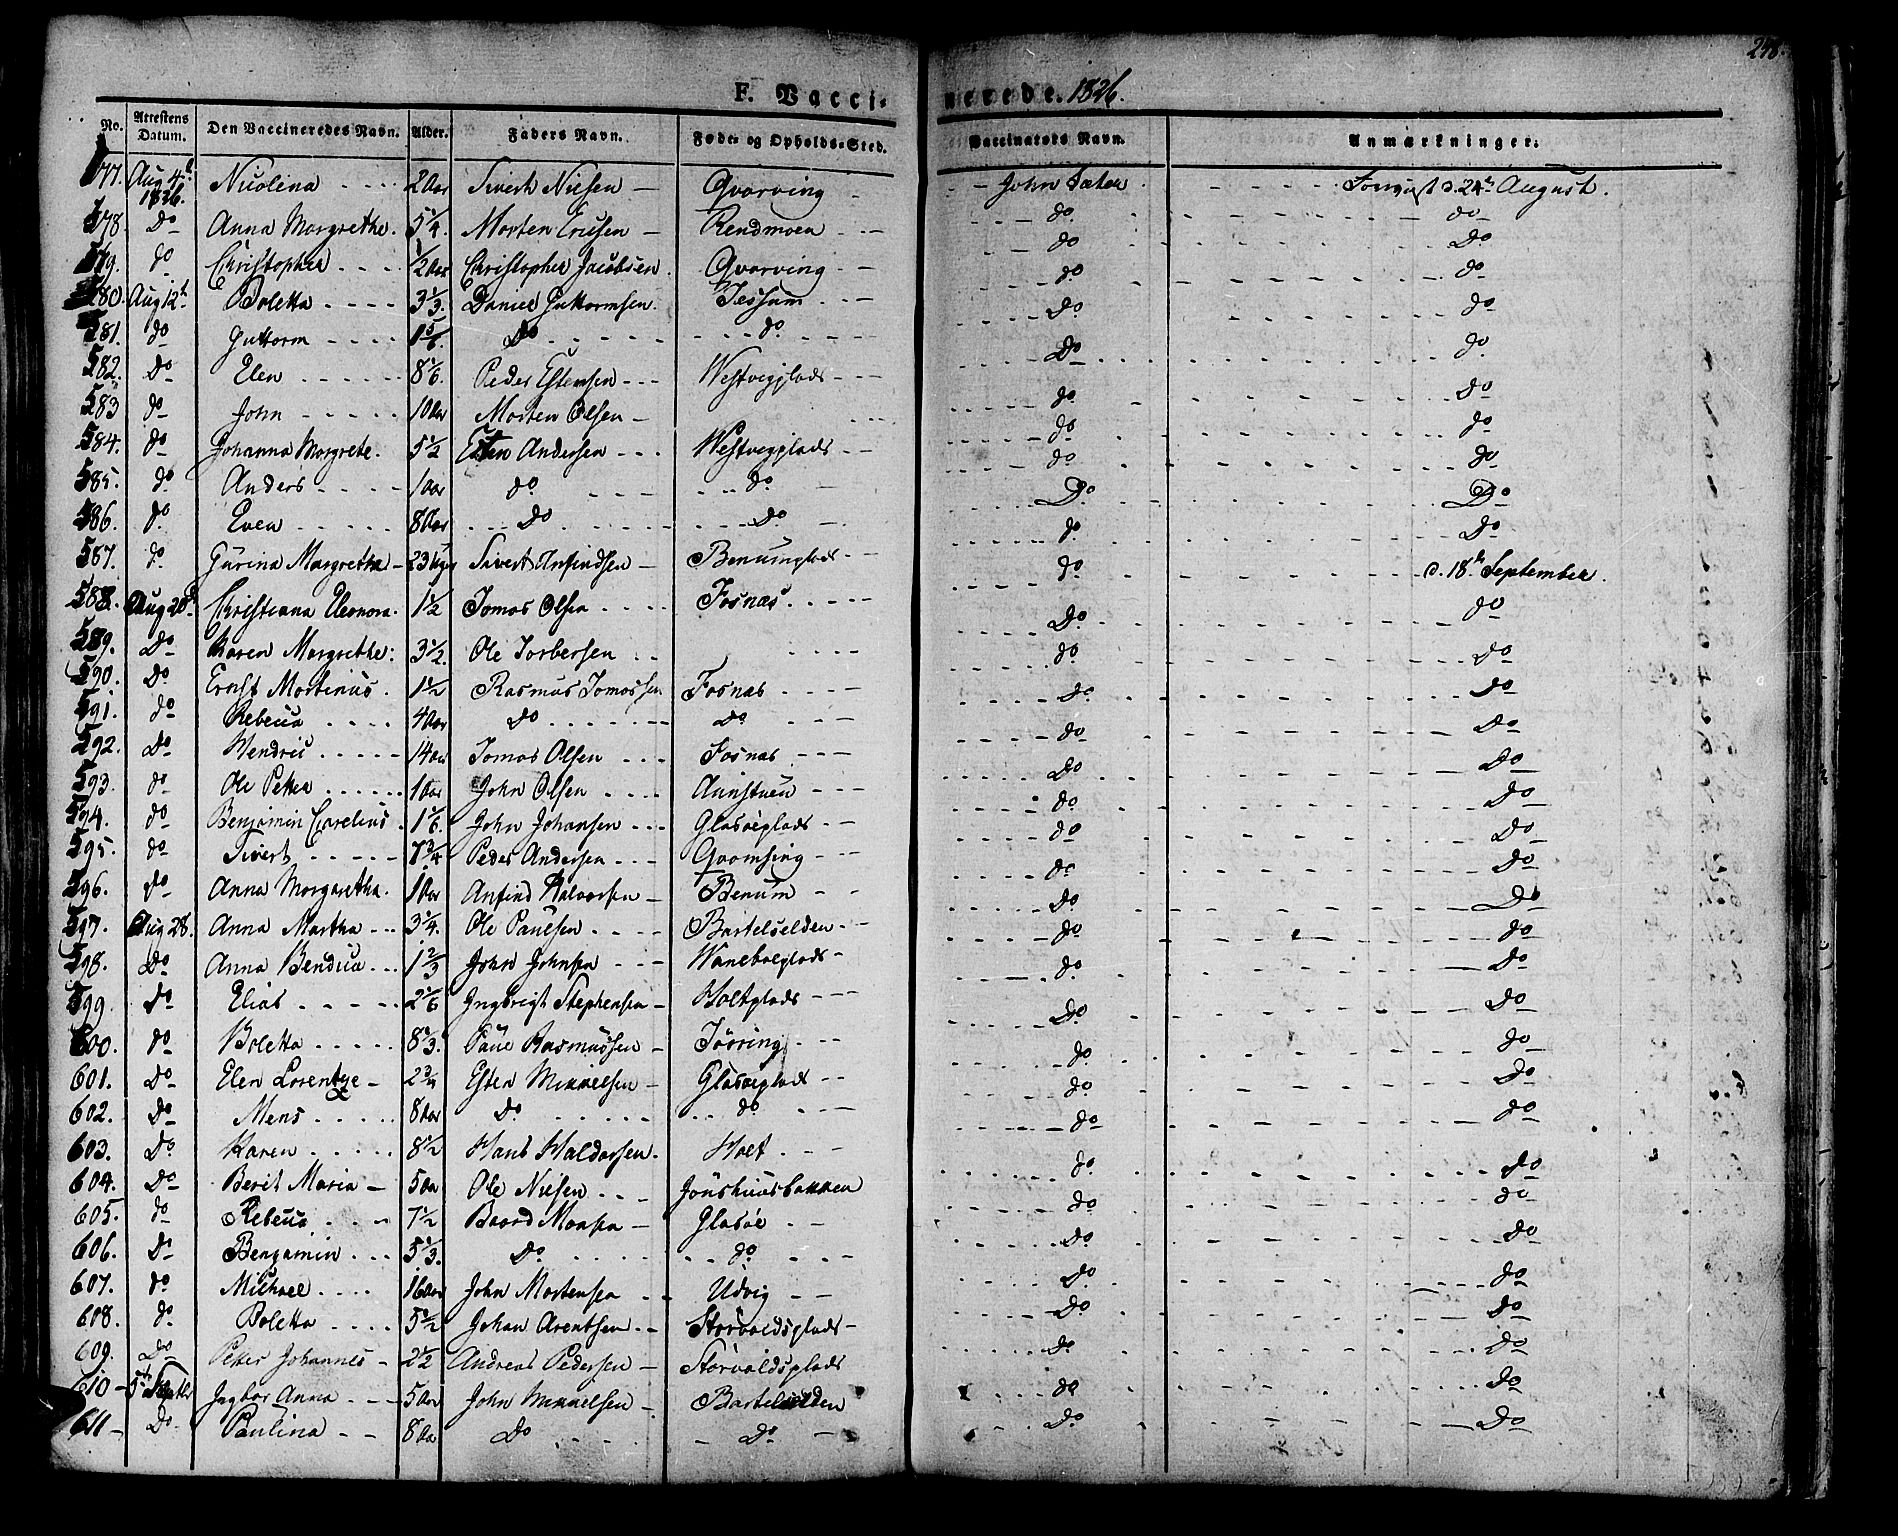 248.
F. Vaccinerede. 1826.
No. Attestens Datum. Den Vaccineredes Navn. Alder. Faders Navn. Føde- og Opholds-Sted. Vaccinators Navn. Anmærkninger.
577. Aug 4th 1826. Nicolina 2 Aar Sivert Nilsen Qvarving John Sæter Forevist d. 24th August.
578. Do Anna Margrethe. 5 1/4. Morten Ericsen Rendmoen do do
579. do Christopher 1/2 Aar Christopher Jacobsen Qvarving do Do
580. Aug 12th Boletta 3 1/3. Daniel Guttormsen. Jessum do do
581. do Guttorm 1 5/6. Do do Do do
582. Do Elen 8 1/6. Peder Estensen Westvegplads Do do
583 do John 10 Aar Morten Olsen do do
584. do Johanna Margrete. 5 1/2 Esten Andersen Westvegplads do do
585. do Anders 1 Aar do do do do
586. do. Even 8 Aar Do Do Do Do
587. do. Gurina Margretha 23 Uger Sivert Anfindsen Benumplads do Do
588. Aug 20d Christianna Eleonora. 1 1/2 Tomas Olsen Fosnæs do d. 18th September.
589. Do Karen Margrethe. 3 1/2. Ole Torbersen Do do
590. Do Ernst Martinus. 1 1/2 Rasmus Tomassen Fosnæs do Do
591. do Rebecca 4 Aar Do Do Do Do
592. Do Hendric 14 Aar Tomas Olsen Fosnæs do Do
593. do Ole Petter 1 Aar John Olsen Aunstuen Do Do
594. do Benjamin Carelius 1 1/6. John Johansen Glasøeplads do Do
595. do Sivert 7 3/4 Peder Andersen Qvamsing do Do
596. Do Anna Margaretha. 1 Aar Anfind Halvorsen Benum do Do
597. Aug 28. Anna Martha 3 1/4. Ole Paulsen Bartelselden Do Do
598. Do Anna Bendica 1 2/3 John Johnsen Wanebaeplads do do
599. Do Elias 2 1/6 Ingbrigt Stephensen Holtplads do Do
600. do Boletta 8 1/3. Paul Rasmussen Tørring Do Do
601. Do Elen Lorentze 2 3/4 Esten Mikkelsen Glasøeplads do do
602. Do Mens 8 Aar Do do do Do
603. Do Karen 8 1/2 Hans Haldorsen. Holt do do
604. Do Berit Maria 5 Aar Ole Nilsen Jonshuusbakken do do
605. do Rebecca 7 1/2 Baard Monsen Glasøe do do
606. Do Benjamin 5 1/3. Do do Do Do
607. do Michael 16 Aar John Mortensen Udvig Do do
608. do Boletta 5 1/2 Johan Arentsen Storvoldsplads Do Do
609. Do Petter Johannes 2 1/2 Andreas Pedersen Storvoldsplads Do Do
610 5th Septbr Ingbor Anna 5 Aar John Mikkelsen Bartelselden do Do
611 Do Paulina 8 Aar Do Do Do Do